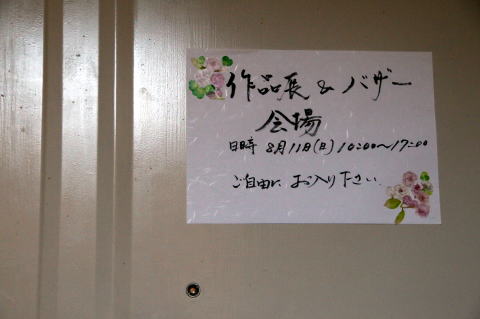 作品展 & バザー
会場
日時 8月11日(日) 10:00〜17:00
ご自由に お入り下さい.